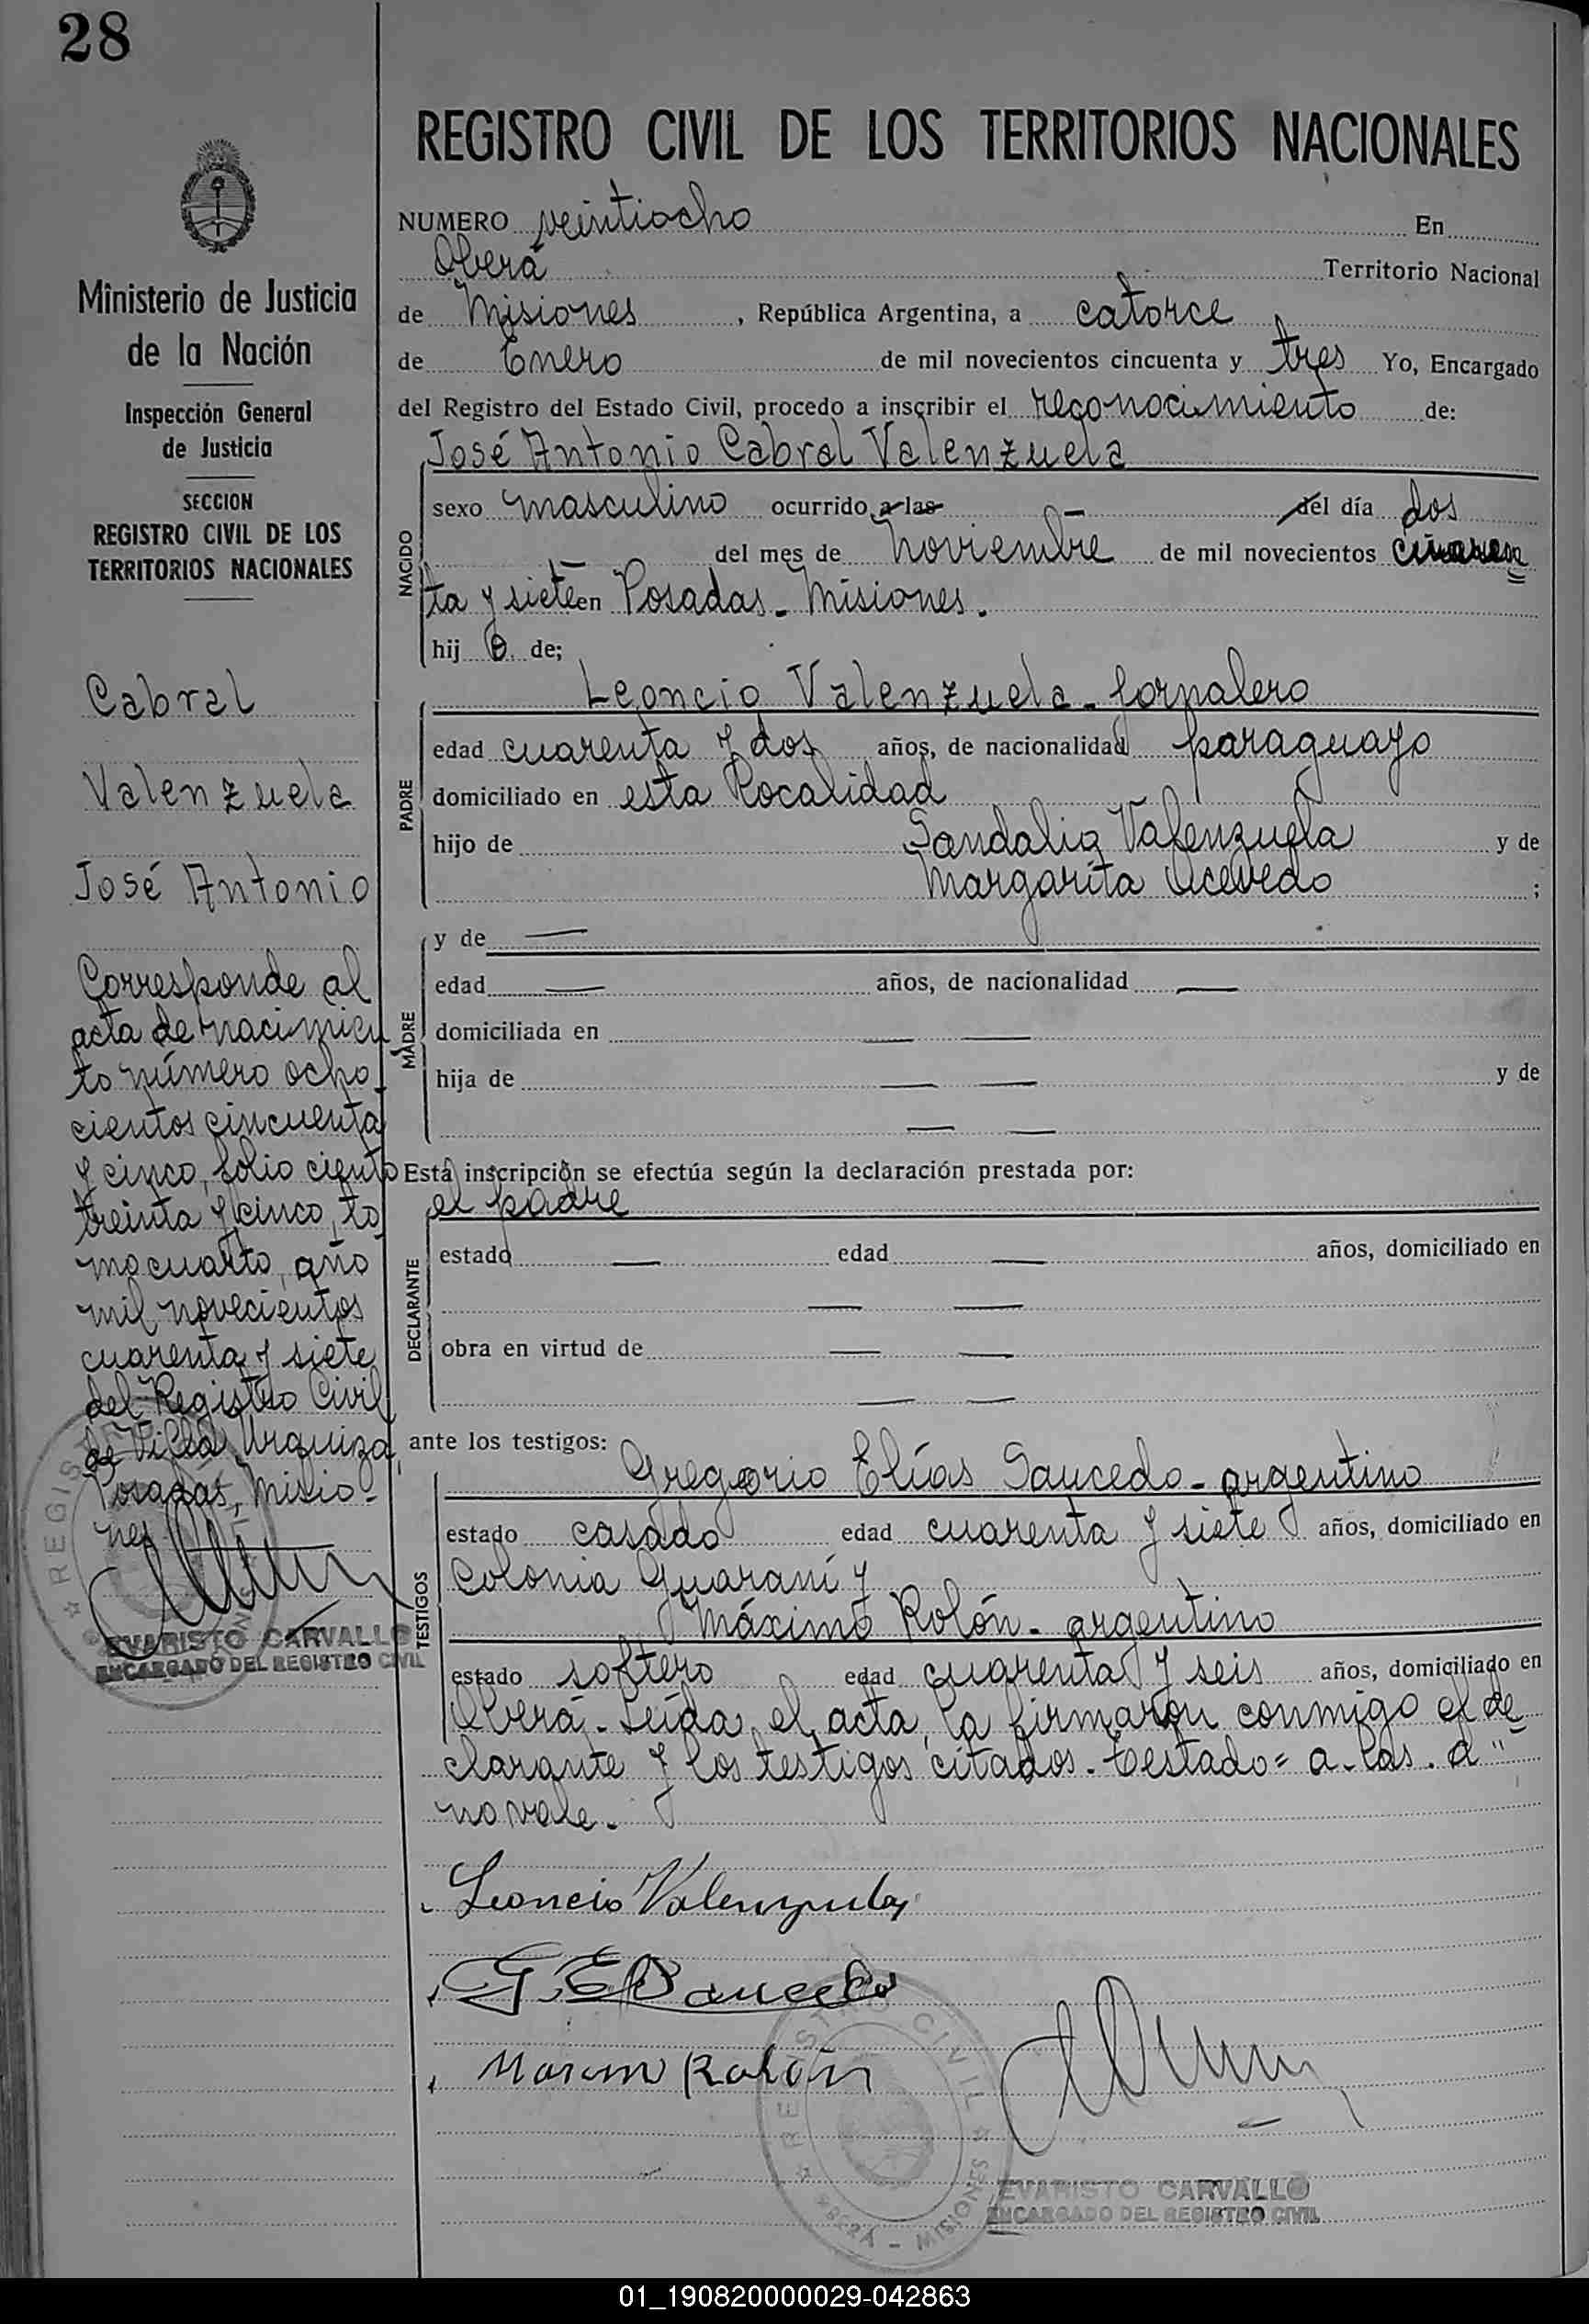 28
REGISTRO CIVIL DE LOS TERRITORIOS NACIONALES
NUMERO veintiocho En
Oberá Territorio Nacional
de Misiones, República Argentina, a catorce
de Enero de mil novecientos cincuenta y tres Yo, Encargado
del Registro del Estado Civil, procedo a inscribir el reconocimiento de:
José Antonio Cabral Valenzuela
NACIDO
sexo masculino ocurrido a las — del día dos
— del mes de noviembre de mil novecientos cuaren
ta y siete en Posadas - Misiones.
hijo de;
PADRE
Leoncio Valenzuela - jornalero
edad cuarenta y dos años, de nacionalidad paraguayo
domiciliado en esta localidad
hijo de Sandalio Valenzuela y de
Margarita Acevedo ;
MADRE
y de —
edad — años, de nacionalidad —
domiciliada en — —
hija de — — y de
— —
Esta inscripción se efectúa según la declaración prestada por:
el padre
DECLARANTE
estado — edad — años, domiciliado en
— —
obra en virtud de — —
— —
ante los testigos:
TESTIGOS
Gregorio Elías Saucedo - argentino
estado casado edad cuarenta y siete años, domiciliado en
Colonia Guaraní y
Máximo Rolón - argentino
estado soltero edad cuarenta y seis años, domiciliado en
Oberá - Leída el acta, la firmaron conmigo el de
clarante y los testigos citados - Testado = a - las - d"
no vale.
Leoncio Valenzuela
G. E. Saucedo
Maximo Rolón
REGISTRO CIVIL
OBERA - MISIONES
EVARISTO CARVALLO
ENCARGADO DEL REGISTRO CIVIL
Ministerio de Justicia
de la Nación
Inspección General
de Justicia
SECCION
REGISTRO CIVIL DE LOS
TERRITORIOS NACIONALES
Cabral
Valenzuela
José Antonio
Corresponde al
acta de nacimien
to número ocho
cientos cincuenta
y cinco, folio ciento
treinta y cinco, to
mo cuarto, año
mil novecientos
cuarenta y siete
del Registro Civil
de Villa Urquiza,
Posadas, Misio-
nes
EVARISTO CARVALLO
ENCARGADO DEL REGISTRO CIVIL
01_190820000029-042863